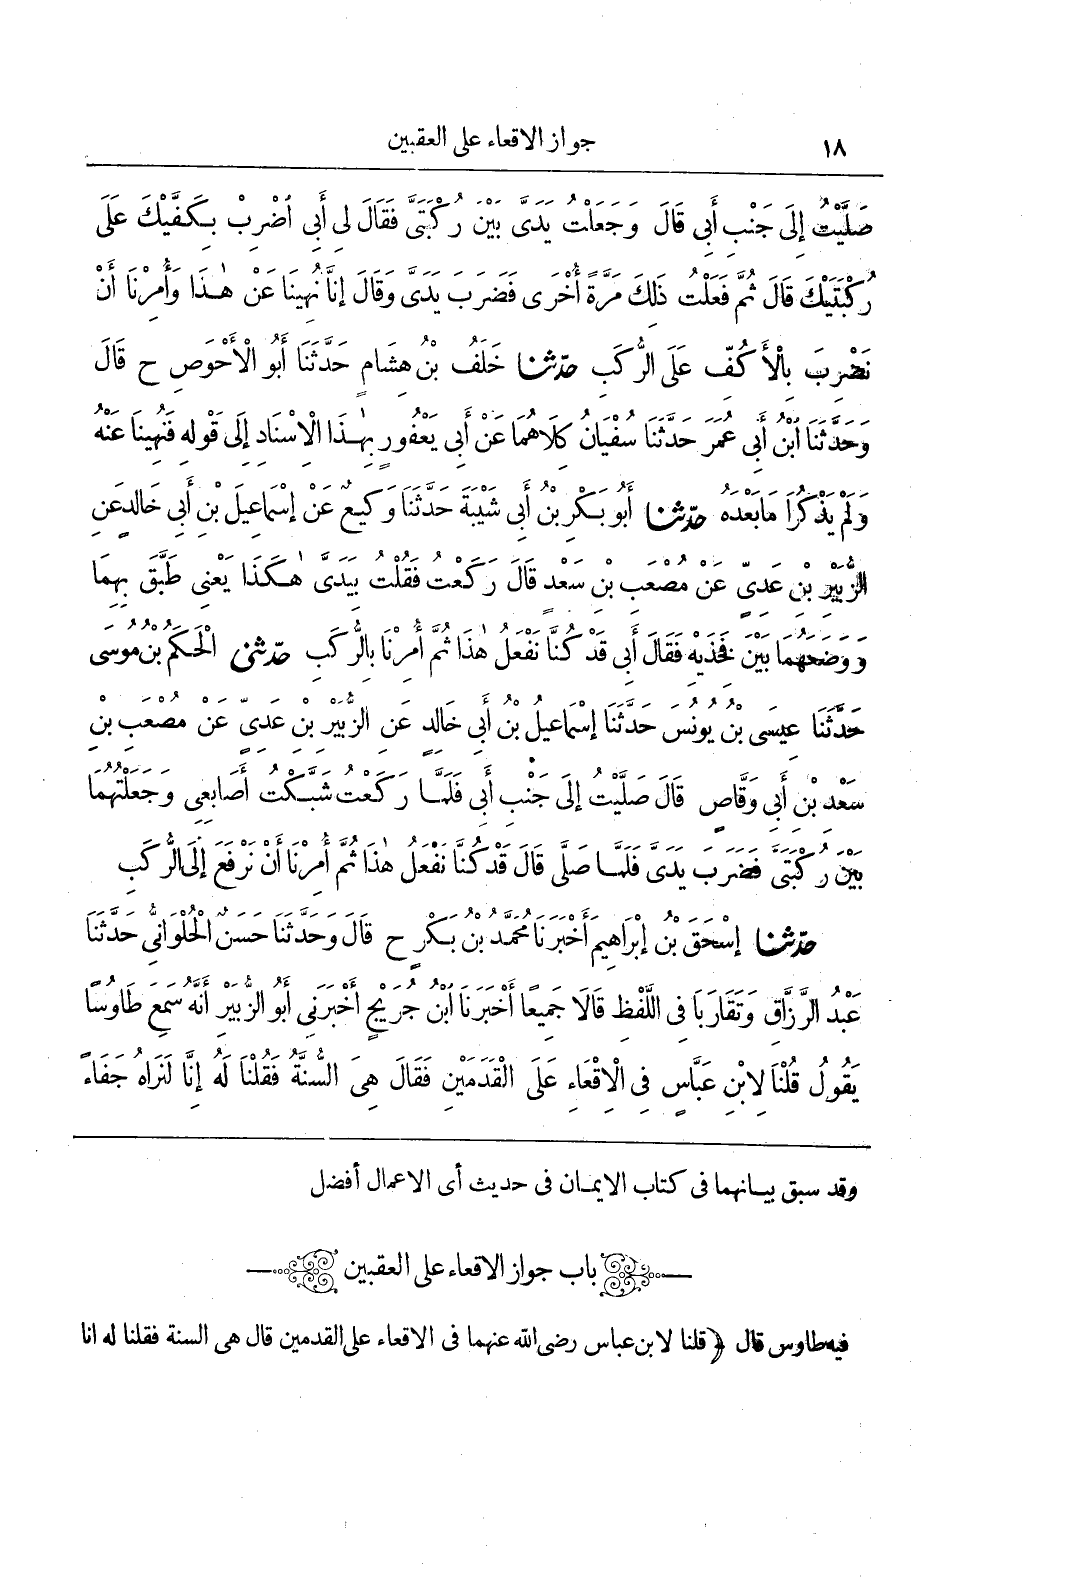 ١٨
جواز الاقعاء على العقبين
صَلَّيْتُ إِلَى جَنْبِ أَبِى قَالَ وَجَعَلْتُ يَدَىَّ بَيْنَ رُكْبَتَىَّ فَقَالَ لِى أَبِى اُضْرِبْ بِكَفَّيْكَ عَلَى
رُكْبَتَيْكَ قَالَ ثُمَّ فَعَلْتُ ذٰلِكَ مَرَّةً أُخْرَى فَضَرَبَ يَدَىَّ وَقَالَ إِنَّا نُهِينَا عَنْ هٰذَا وَأُمِرْنَا أَنْ
نَضْرِبَ بِالْأَكُفِّ عَلَى الرُّكَبِ حدّثنا خَلَفُ بْنُ هِشَامٍ حَدَّثَنَا أَبُو الْأَحْوَصِ ح قَالَ
وَحَدَّثَنَا ابْنُ أَبِى عُمَرَ حَدَّثَنَا سُفْيَانُ كِلَاهُمَا عَنْ أَبِى يَعْفُورٍ بِهٰذَا الْإِسْنَادِ إِلَى قَوْلِهِ فَنُهِينَا عَنْهُ
وَلَمْ يَذْكُرَا مَا بَعْدَهُ حدّثنا أَبُو بَكْرِ بْنُ أَبِى شَيْبَةَ حَدَّثَنَا وَكِيعٌ عَنْ إِسْمَاعِيلَ بْنِ أَبِى خَالِدٍ عَنِ
الزُّبَيْرِ بْنِ عَدِىٍّ عَنْ مُصْعَبِ بْنِ سَعْدٍ قَالَ رَكَعْتُ فَقُلْتُ بِيَدَىَّ هٰكَذَا يَعْنِى طَبَّقَ بِهِمَا
وَوَضَعَهُمَا بَيْنَ فَخِذَيْهِ فَقَالَ أَبِى قَدْ كُنَّا نَفْعَلُ هٰذَا ثُمَّ أُمِرْنَا بِالرُّكَبِ حدّثنى الْحَكَمُ بْنُ مُوسَى
حَدَّثَنَا عِيسَى بْنُ يُونُسَ حَدَّثَنَا إِسْمَاعِيلُ بْنُ أَبِى خَالِدٍ عَنِ الزُّبَيْرِ بْنِ عَدِىٍّ عَنْ مُصْعَبِ بْنِ
سَعْدِ بْنِ أَبِى وَقَّاصٍ قَالَ صَلَّيْتُ إِلَى جَنْبِ أَبِى فَلَمَّا رَكَعْتُ شَبَّكْتُ أَصَابِعِى وَجَعَلْتُهُمَا
بَيْنَ رُكْبَتَىَّ فَضَرَبَ يَدَىَّ فَلَمَّا صَلَّى قَالَ قَدْ كُنَّا نَفْعَلُ هٰذَا ثُمَّ أُمِرْنَا أَنْ نَرْفَعَ إِلَى الرُّكَبِ
حدّثنا إِسْحَقُ بْنُ إِبْرَاهِيمَ أَخْبَرَنَا مُحَمَّدُ بْنُ بَكْرٍ ح قَالَ وَحَدَّثَنَا حَسَنٌ الْحُلْوَانِىُّ حَدَّثَنَا
عَبْدُ الرَّزَّاقِ وَتَقَارَبَا فِى اللَّفْظِ قَالَا جَمِيعًا أَخْبَرَنَا ابْنُ جُرَيْجٍ أَخْبَرَنِى أَبُو الزُّبَيْرِ أَنَّهُ سَمِعَ طَاوُسًا
يَقُولُ قُلْنَا لِابْنِ عَبَّاسٍ فِى الْإِقْعَاءِ عَلَى الْقَدَمَيْنِ فَقَالَ هِىَ السُّنَّةُ فَقُلْنَا لَهُ إِنَّا لَنَرَاهُ جَفَاءً
وقد سبق بيانهما فى كتاب الايمان فى حديث أى الاعمال أفضل
باب جواز الاقعاء على العقبين
فيه طاوس قال ﴿قلنا لابن عباس رضى الله عنهما فى الاقعاء على القدمين قال هى السنة فقلنا له انا